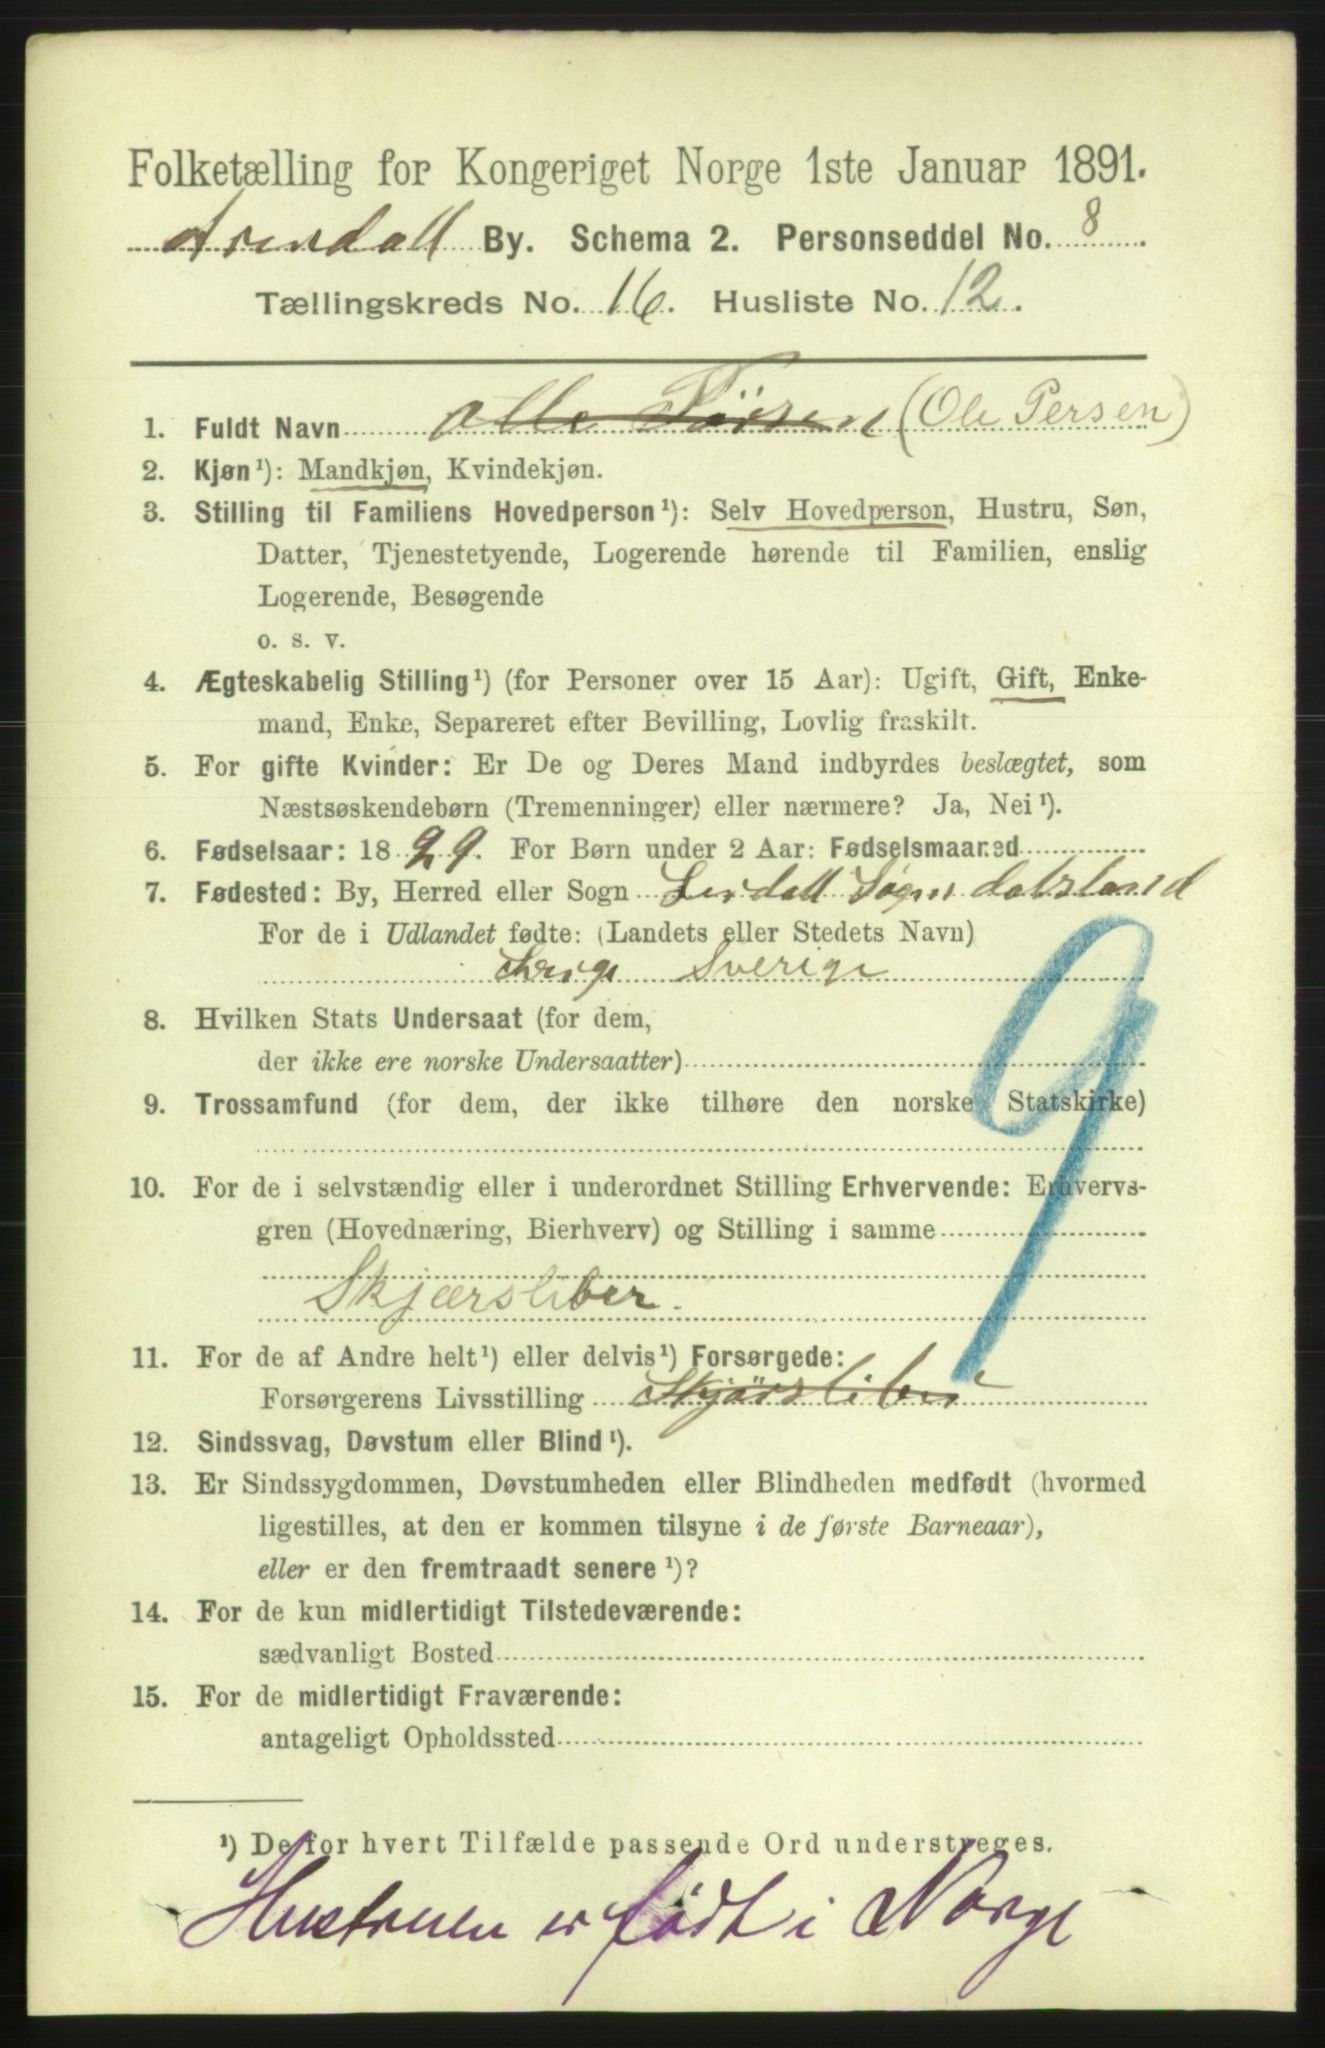 Folketælling for Kongeriget Norge 1ste Januar 1891.
Arendall By. Schema 2. Personseddel No. 8.
Tællingskreds No. 16. Husliste No. 12.
1. Fuldt Navn Olle (Ole Persen)
2. Kjøn¹): Mandkjøn, Kvindekjøn.
3. Stilling til Familiens Hovedperson¹): Selv Hovedperson, Hustru, Søn,
Datter, Tjenestetyende, Logerende hørende til Familien, enslig
Logerende, Besøgende
o. s. v.
4. Ægteskabelig Stilling¹) (for Personer over 15 Aar): Ugift, Gift, Enke-
mand, Enke, Separeret efter Bevilling, Lovlig fraskilt.
5. For gifte Kvinder: Er De og Deres Mand indbyrdes beslægtet, som
Næstsøskendebørn (Tremenninger) eller nærmere? Ja, Nei¹).
6. Fødselsaar: 1829. For Børn under 2 Aar: Fødselsmaaned
7. Fødested: By, Herred eller Sogn Lerdall Sogn dalsland
For de i Udlandet fødte: (Landets eller Stedets Navn)
Sverige
8. Hvilken Stats Undersaat (for dem,
der ikke ere norske Undersaatter)
9. Trossamfund (for dem, der ikke tilhøre den norske Statskirke)
10. For de i selvstændig eller i underordnet Stilling Erhvervende: Erhvervs-
gren (Hovednæring, Bierhverv) og Stilling i samme
Skjærsliber.
11. For de af Andre helt¹) eller delvis¹) Forsørgede:
Forsørgerens Livsstilling Skjörsliber
12. Sindssvag, Døvstum eller Blind¹).
13. Er Sindssygdommen, Døvstumheden eller Blindheden medfødt (hvormed
ligestilles, at den er kommen tilsyne i de første Barneaar),
eller er den fremtraadt senere¹)?
14. For de kun midlertidigt Tilstedeværende:
sædvanligt Bosted
15. For de midlertidigt Fraværende:
antageligt Opholdssted
9
¹) De for hvert Tilfælde passende Ord understreges.
Hustruen er født i Norge